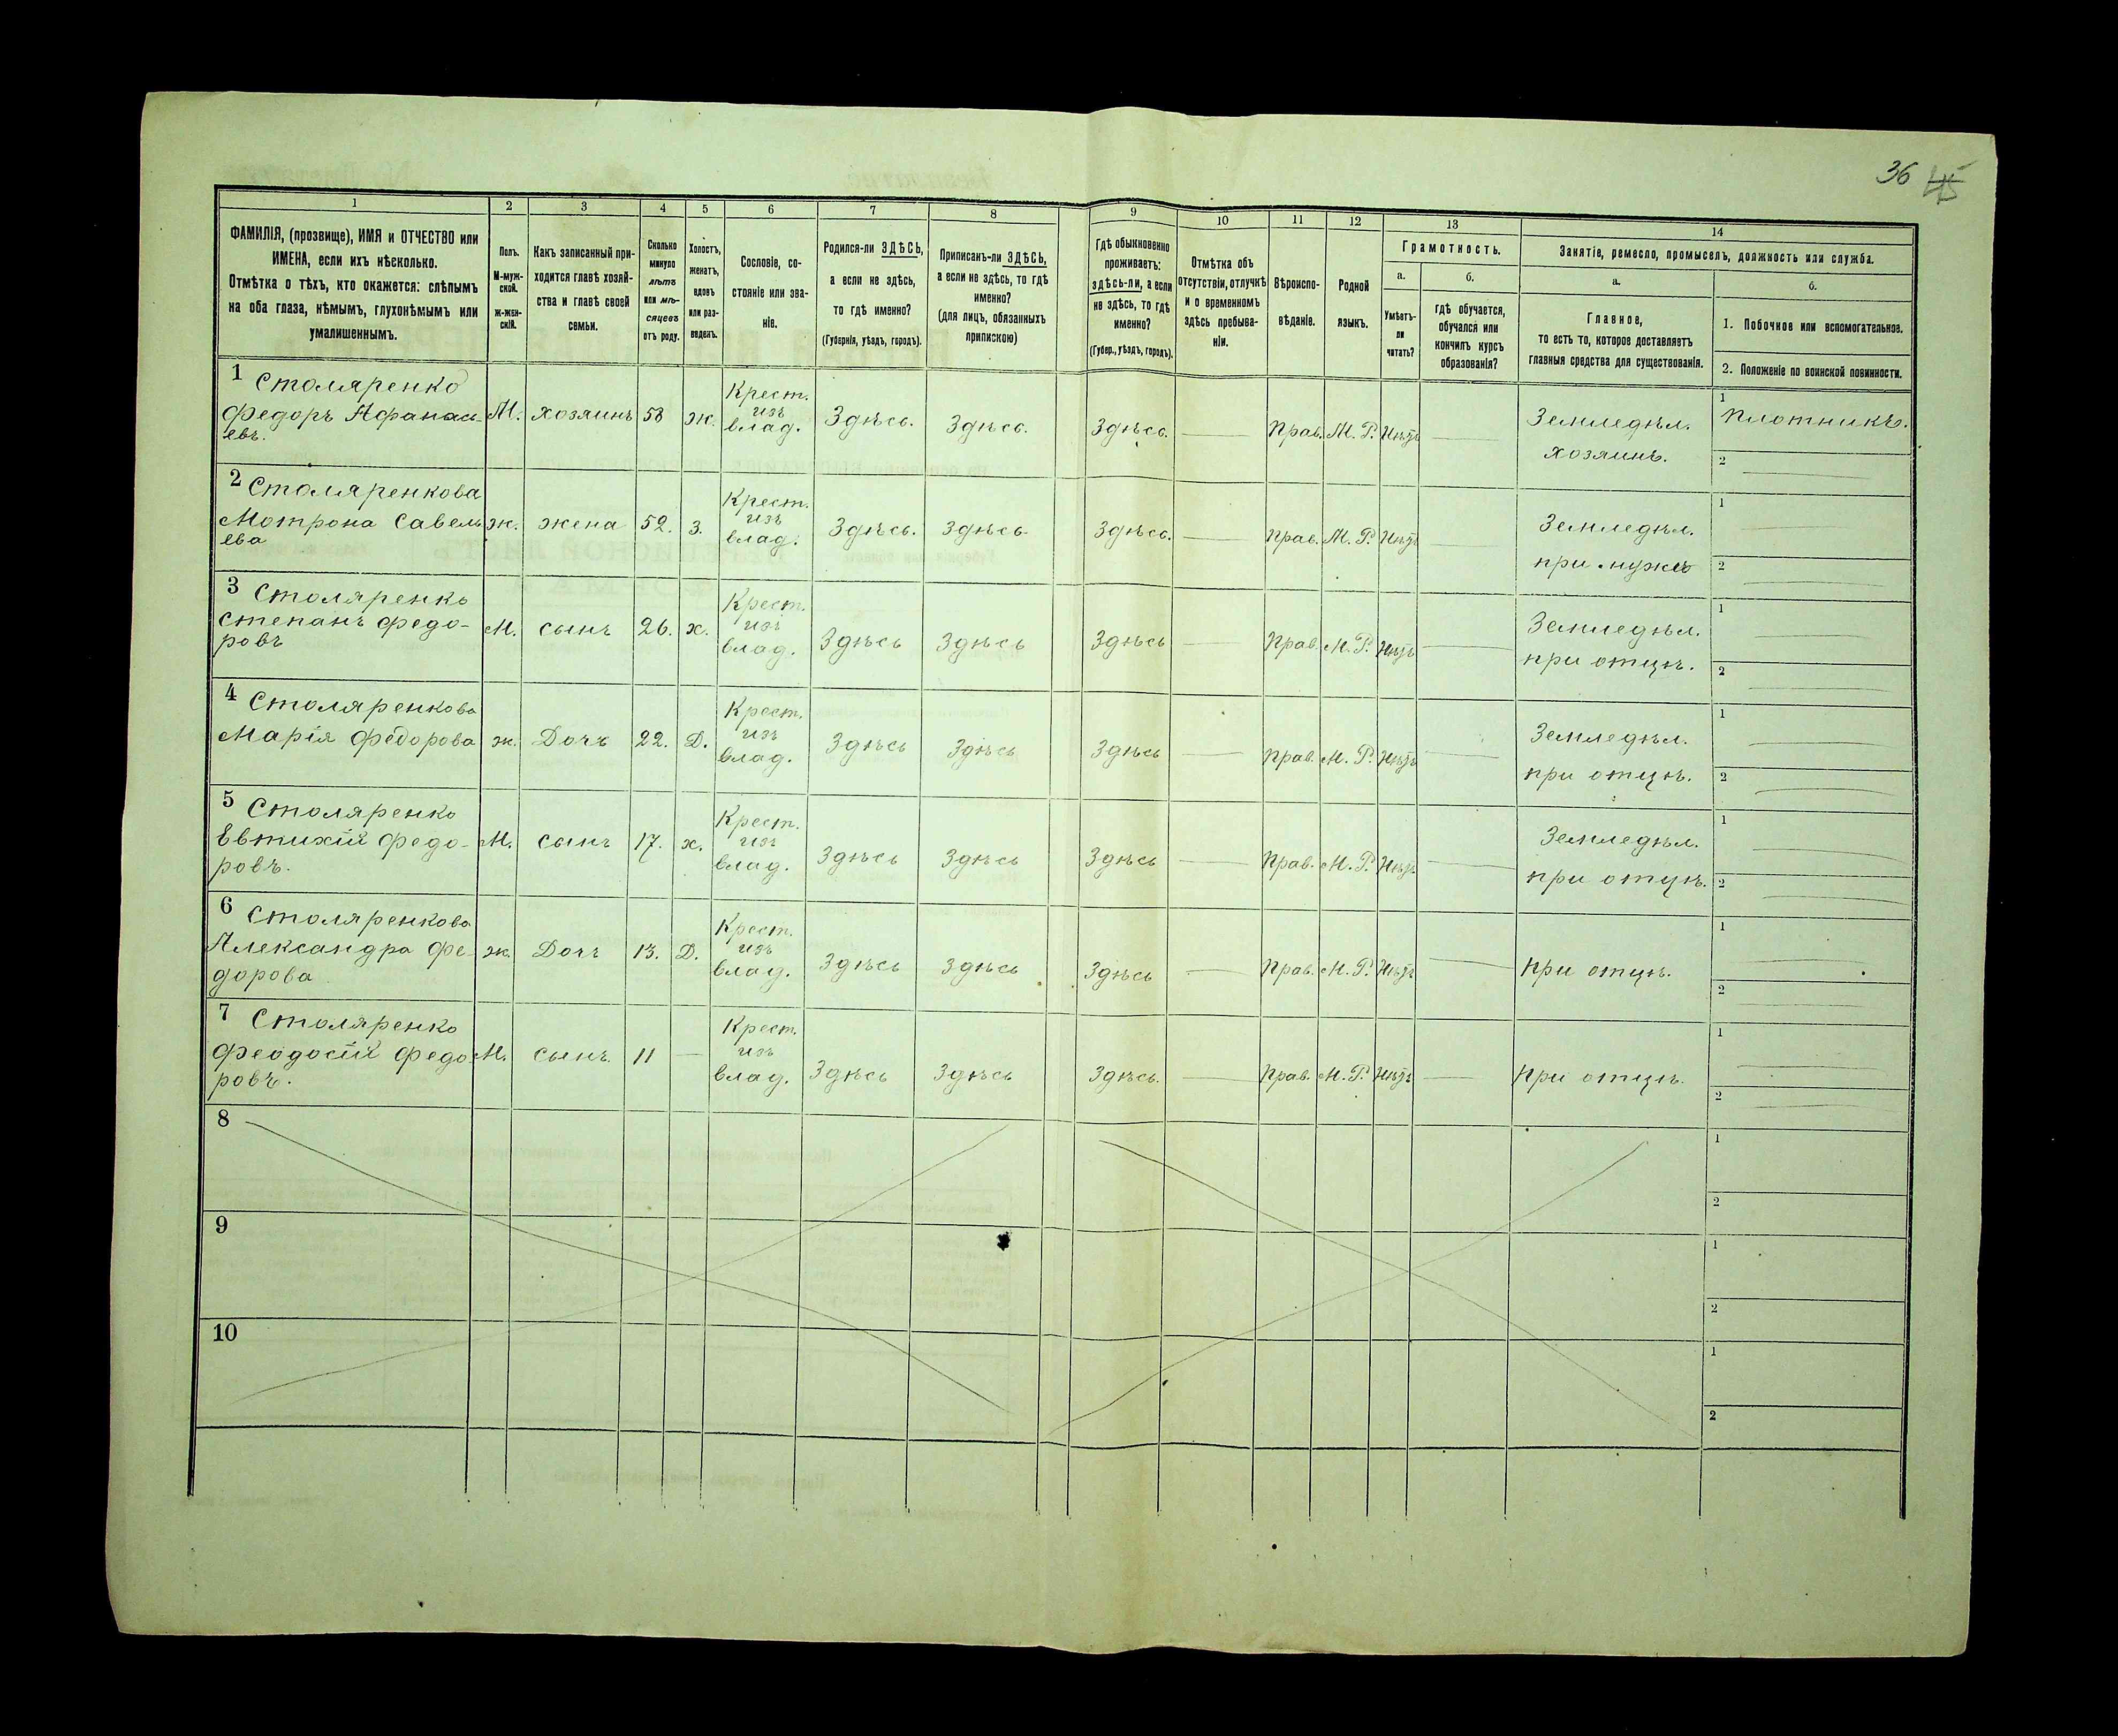 36 45
1 2 3 4 5 6 7 8 9 10 11 12 13 14
ФАМИЛІЯ, (прозвище), ИМЯ и ОТЧЕСТВО или
ИМЕНА, если ихъ нѣсколько.
Отмѣтка о тѣхъ, кто окажется: слѣпымъ
на оба глаза, нѣмымъ, глухонѣмымъ или
умалишеннымъ.
Полъ.
М-муж-
ской.
ж-жен-
скій.
Какъ записанный при-
ходится главѣ хозяй-
ства и главѣ своей
семьи.
Сколько
минуло
лѣтъ
или мѣ-
сяцевъ
отъ роду.
Холостъ,
женатъ,
вдовъ
или раз-
веденъ.
Сословіе, со-
стояніе или зва-
ніе.
Родился-ли ЗДѢСЬ,
а если не здѣсь,
то гдѣ именно?
(Губернія, уѣздъ, городъ).
Приписанъ-ли ЗДѢСЬ,
а если не здѣсь, то гдѣ
именно?
(для лицъ, обязанныхъ
припискою)
Гдѣ обыкновенно
проживаетъ:
здѣсь-ли, а если
не здѣсь, то гдѣ
именно?
(Губер., уѣздъ, городъ).
Отмѣтка объ
отсутствіи, отлучкѣ
и о временномъ
здѣсь пребыва-
ніи.
Вѣроиспо-
вѣданіе.
Родной
языкъ.
Грамотность.
а.
Умѣетъ-
ли
читать?
б.
гдѣ обучается,
обучался или
кончилъ курсъ
образованія?
Занятіе, ремесло, промыселъ, должность или служба.
а.
Главное,
то есть то, которое доставляетъ
главныя средства для существованія.
б.
1. Побочное или вспомогательное.
2. Положеніе по воинской повинности.
1 Столяренко
Федоръ Афанась-
евъ.
М. хозяинъ 58 ж.
Крест.
изъ
влад.
Здѣсь. Здѣсь. Здѣсь. Прав. М. Р. Нѣтъ
Земледѣл.
хозяинъ.
1 Плотникъ.
2
2 Столяренкова
Мотрона Савель
ева
ж. жена 52. з.
Крест.
изъ
влад.
Здѣсь. Здѣсь Здѣсь. Прав. М. Р. Нѣтъ
Земледѣл.
при мужѣ
1
2
3 Столяренко
Степанъ Федо-
ровъ
М. сынъ 26. х.
Крест.
изъ
влад.
Здѣсь Здѣсь Здѣсь Прав. М. Р. Нѣтъ
Земледѣл.
при отцѣ.
1
2
4 Столяренкова
Марія Федорова
ж. Дочь 22. Д.
Крест.
изъ
влад.
Здѣсь Здѣсь Здѣсь Прав. М. Р. Нѣтъ
Земледѣл.
при отцѣ.
1
2
5 Столяренко
Евтихій Федо-
ровъ.
М. сынъ 17. х.
Крест.
изъ
влад.
Здѣсь Здѣсь Здѣсь Прав. М. Р. Нѣтъ
Земледѣл.
при отцѣ.
1
2
6 Столяренкова
Александра Фе-
дорова
ж. Дочь 13. Д.
Крест.
изъ
влад.
Здѣсь Здѣсь Здѣсь Прав. М. Р. Нѣтъ
При отцѣ.
1
2
7 Столяренко
Феодосій Федо
ровъ.
М. сынъ. 11
Крест.
изъ
влад.
Здѣсь Здѣсь Здѣсь. Прав. М. Р. Нѣтъ
При отцѣ.
1
2
8
1
2
9
1
2
10
1
2